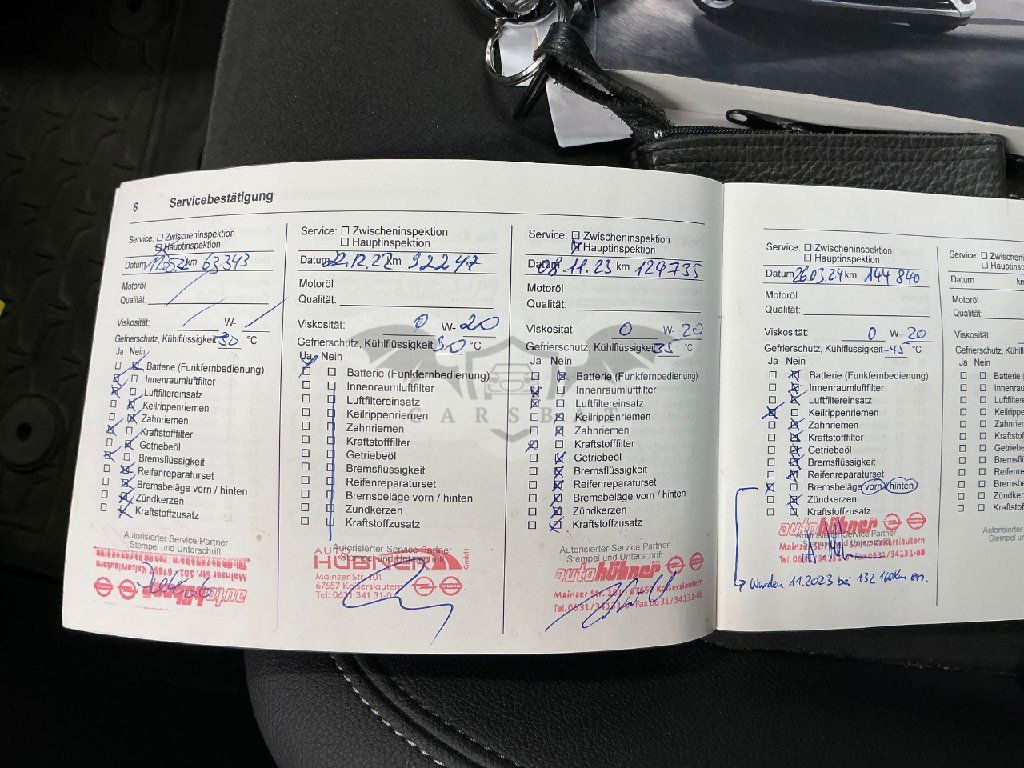 6 Servicebestätigung
Service: Zwischeninspektion
Hauptinspektion
Datum km 63 343
Motoröl
Qualität:
Viskosität: W-
Gefrierschutz, Kühlflüssigkeit 30 °C
Ja Nein
Batterie (Funkfernbedienung)
Innenraumluftfilter
Luftfiltereinsatz
Keilrippenriemen
Zahnriemen
Kraftstofffilter
Getriebeöl
Bremsflüssigkeit
Reifenreparaturset
Bremsbeläge vorn / hinten
Zündkerzen
Kraftstoffzusatz
Autorisierter Service Partner
Stempel und Unterschrift
autohübner
Service: Zwischeninspektion
Hauptinspektion
Datum km 92247
Motoröl
Qualität:
Viskosität: 0 W- 20
Gefrierschutz, Kühlflüssigkeit °C
Ja Nein
Batterie (Funkfernbedienung)
Innenraumluftfilter
Luftfiltereinsatz
Keilrippenriemen
Zahnriemen
Kraftstofffilter
Getriebeöl
Bremsflüssigkeit
Reifenreparaturset
Bremsbeläge vorn / hinten
Zündkerzen
Kraftstoffzusatz
Autorisierter Service Partner
Stempel und Unterschrift
HÜBNER GmbH
Mainzer Str. 101
67657 Kaiserslautern
Tel.: 0631 341 31-0
Service: Zwischeninspektion
Hauptinspektion
Datum 08.11.23 km 129735
Motoröl
Qualität:
Viskosität 0 W- 20
Gefrierschutz, Kühlflüssigkeit 35 °C
Ja Nein
Batterie (Funkfernbedienung)
Innenraumluftfilter
Luftfiltereinsatz
Keilrippenriemen
Zahnriemen
Kraftstofffilter
Getriebeöl
Bremsflüssigkeit
Reifenreparaturset
Bremsbeläge vorn / hinten
Zündkerzen
Kraftstoffzusatz
Autorisierter Service Partner
Stempel und Unterschrift
autohübner
Mainzer Str. 101 · 67657 Kaiserslautern
Service: Zwischeninspektion
Hauptinspektion
Datum 26.03.24 km 144 840
Motoröl
Qualität:
Viskosität: 0 W- 20
Gefrierschutz, Kühlflüssigkeit -45 °C
Ja Nein
Batterie (Funkfernbedienung)
Innenraumluftfilter
Luftfiltereinsatz
Keilrippenriemen
Zahnriemen
Kraftstofffilter
Getriebeöl
Bremsflüssigkeit
Reifenreparaturset
Bremsbeläge vorn / hinten
Zündkerzen
Kraftstoffzusatz
Autorisierter Service Partner
autohübner
Wurden 11.2023 bei 132 160km ern.
Service:
Datum
Motoröl
Qualität:
Viskosität:
Gefrierschutz,
Ja Nein
CARSBAT